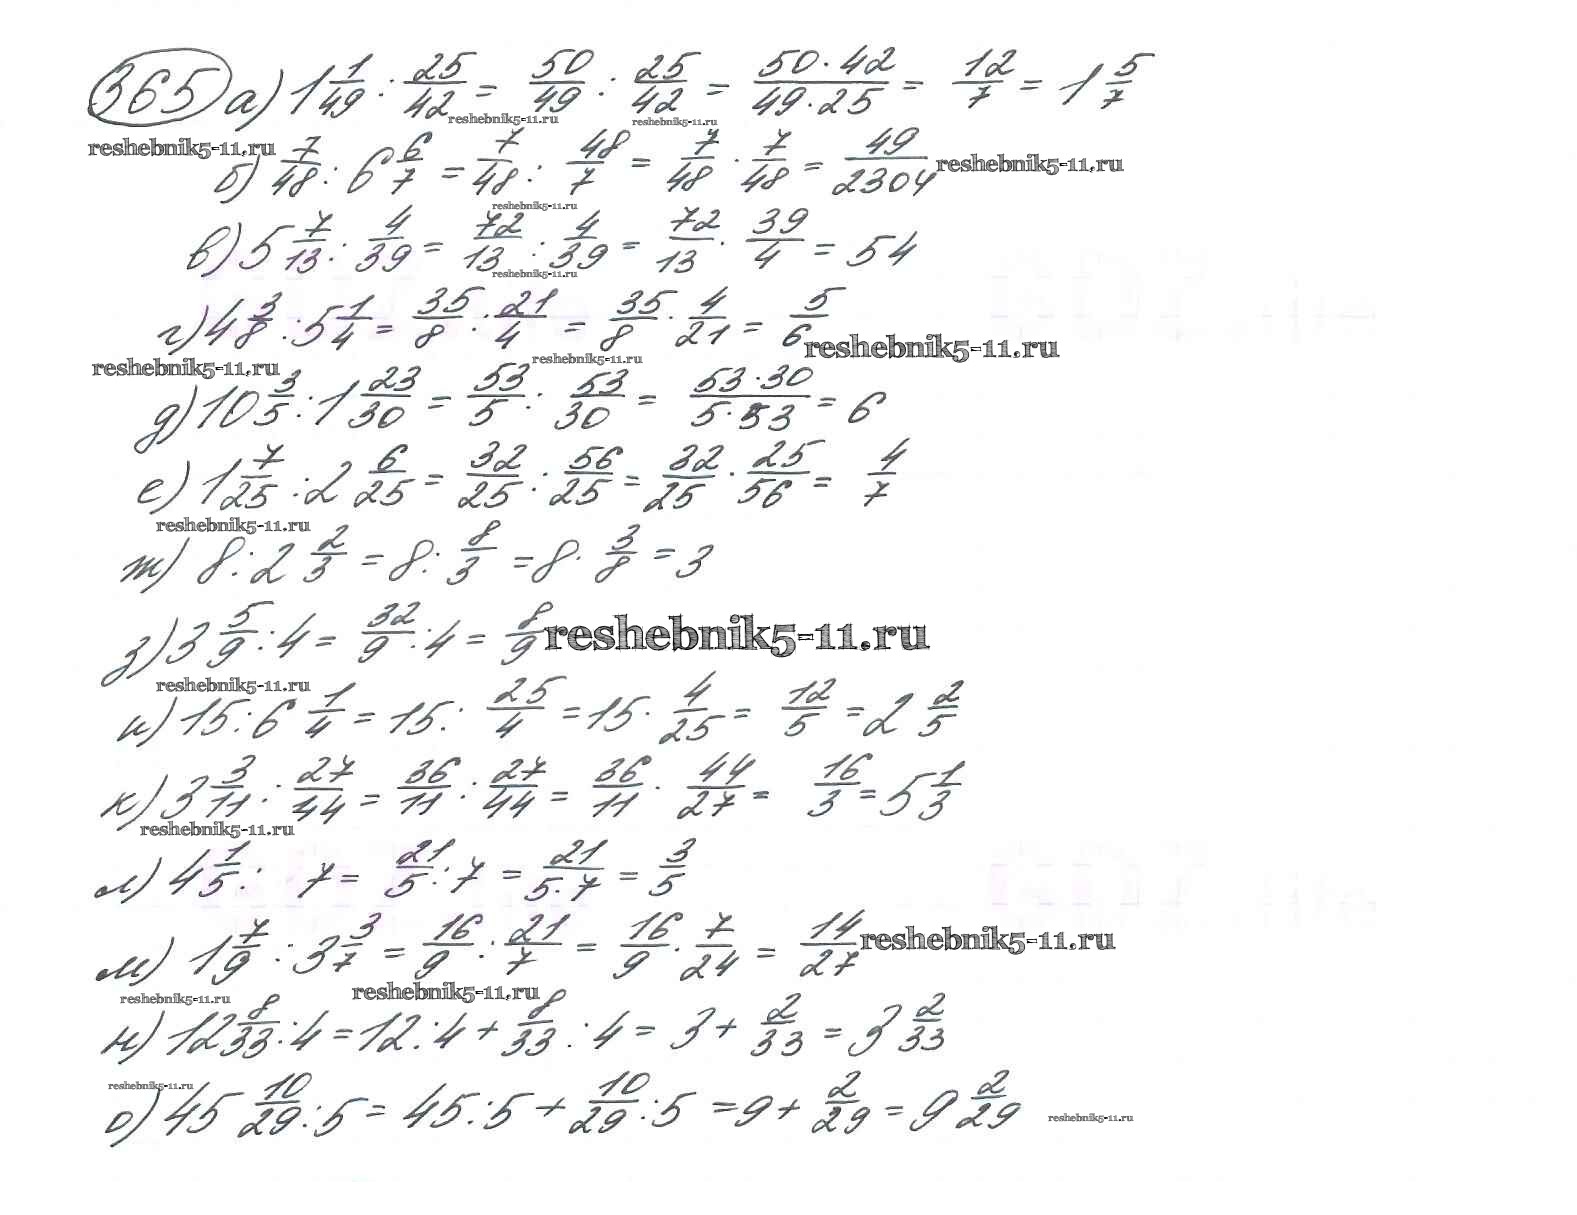 365 а) 1 1/49 : 25/42 = 50/49 : 25/42 = 50·42/49·25 = 12/7 = 1 5/7
reshebnik5-11.ru reshebnik5-11.ru reshebnik5-11.ru
б) 7/48 : 6 6/7 = 7/48 : 48/7 = 7/48 · 7/48 = 49/2304 reshebnik5-11.ru
reshebnik5-11.ru
в) 5 7/13 : 4/39 = 72/13 : 4/39 = 72/13 · 39/4 = 54
reshebnik5-11.ru
г) 4 3/8 : 5 1/4 = 35/8 : 21/4 = 35/8 · 4/21 = 5/6 reshebnik5-11.ru
reshebnik5-11.ru reshebnik5-11.ru
д) 10 3/5 : 1 23/30 = 53/5 : 53/30 = 53·30/5·53 = 6
е) 1 7/25 : 2 6/25 = 32/25 : 56/25 = 32/25 · 25/56 = 4/7
reshebnik5-11.ru
ж) 8 : 2 2/3 = 8 : 8/3 = 8 · 3/8 = 3
з) 3 5/9 : 4 = 32/9 : 4 = 8/9 reshebnik5-11.ru
reshebnik5-11.ru
и) 15 : 6 1/4 = 15 : 25/4 = 15 · 4/25 = 12/5 = 2 2/5
к) 3 3/11 : 27/44 = 36/11 : 27/44 = 36/11 · 44/27 = 16/3 = 5 1/3
reshebnik5-11.ru
л) 4 1/5 : 7 = 21/5 : 7 = 21/5·7 = 3/5
м) 1 7/9 : 3 3/7 = 16/9 : 21/7 = 16/9 · 7/24 = 14/27 reshebnik5-11.ru
reshebnik5-11.ru reshebnik5-11.ru
н) 12 8/33 : 4 = 12 : 4 + 8/33 : 4 = 3 + 2/33 = 3 2/33
reshebnik5-11.ru
о) 45 10/29 : 5 = 45 : 5 + 10/29 : 5 = 9 + 2/29 = 9 2/29 reshebnik5-11.ru